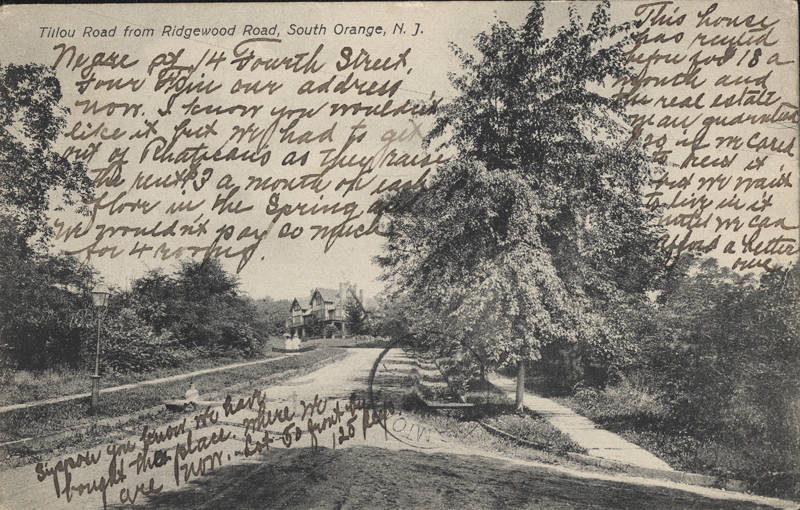 Tillou Road from Ridgewood Road, South Orange, N. J.
We are at 14 Fourth Street,
four in our address
now. I know you wouldn't
like it but we had to get
out of as they raise
the rent $3 a month on each
floor in the Spring and
we wouldn't pay so much
for 4 rooms.
This house
has rented
before for 18 a
month and
the real estate
man guaranteed
 if we cared
to rent it
but we want
to live in it
until we can
afford a better
one.
Suppose you know we have
bought the place, where we
are now. Lot 50 front by
125 deep.